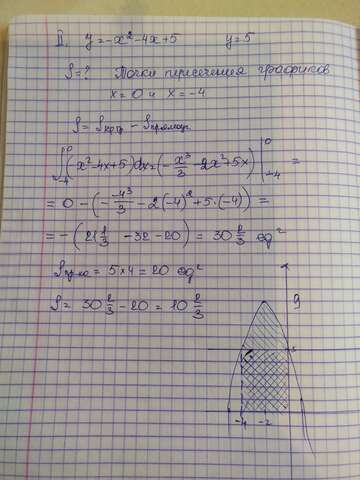 II. y=-x²-4x+5 y=5
S=? Точки пересечения графиков
x=0 и x=-4
S = Sкрив - Sпрямоуг
∫₋₄⁰(x²-4x+5)dx=(-x³/3-2x²+5x)|₋₄⁰ =
= 0-(-(-4³)/3-2(-4)²+5·(-4)) =
= -(21 1/3 -32-20) = 30 2/3 ед²
Sпрям = 5×4 = 20 ед²
S = 30 2/3 - 20 = 10 2/3
9
5
-4 -2